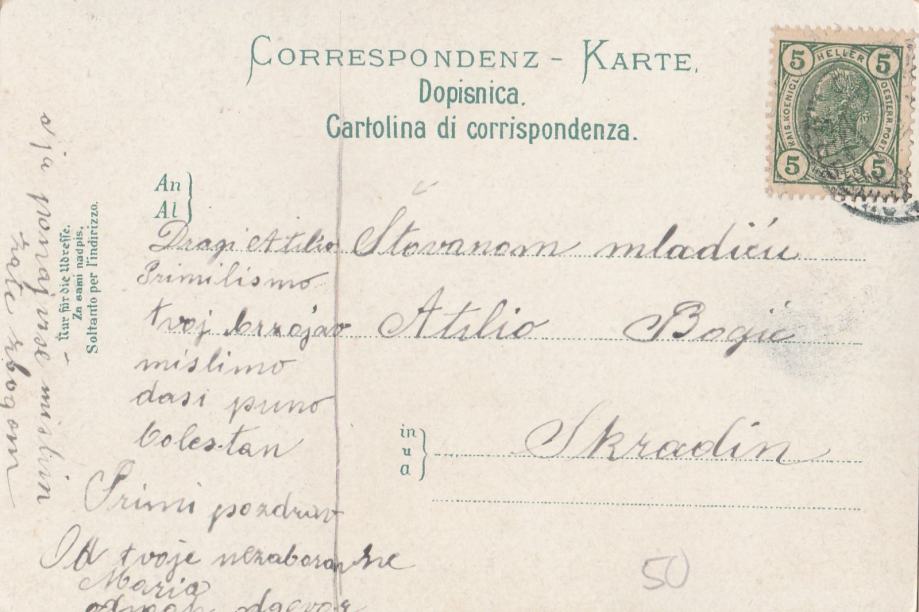 CORRESPONDENZ - KARTE.
Dopisnica.
Cartolina di corrispondenza.
5 HELLER 5
KAIS. KOENIGL. OESTERR. POST
5 HELLER 5
An
Al
Nur für die Adresse.
Za sami nadpis.
Soltanto per l'indirizzo.
Štovanom mladiću
Atilio Bogić
in
u
a
Skradin
Dragi Atilio
Primilismo
tvoj brzojav
mislimo
dasi puno
bolestan
Primi pozdrav
Od tvoje nezaboravne
Maria
odmah
mislim
zbogom
50